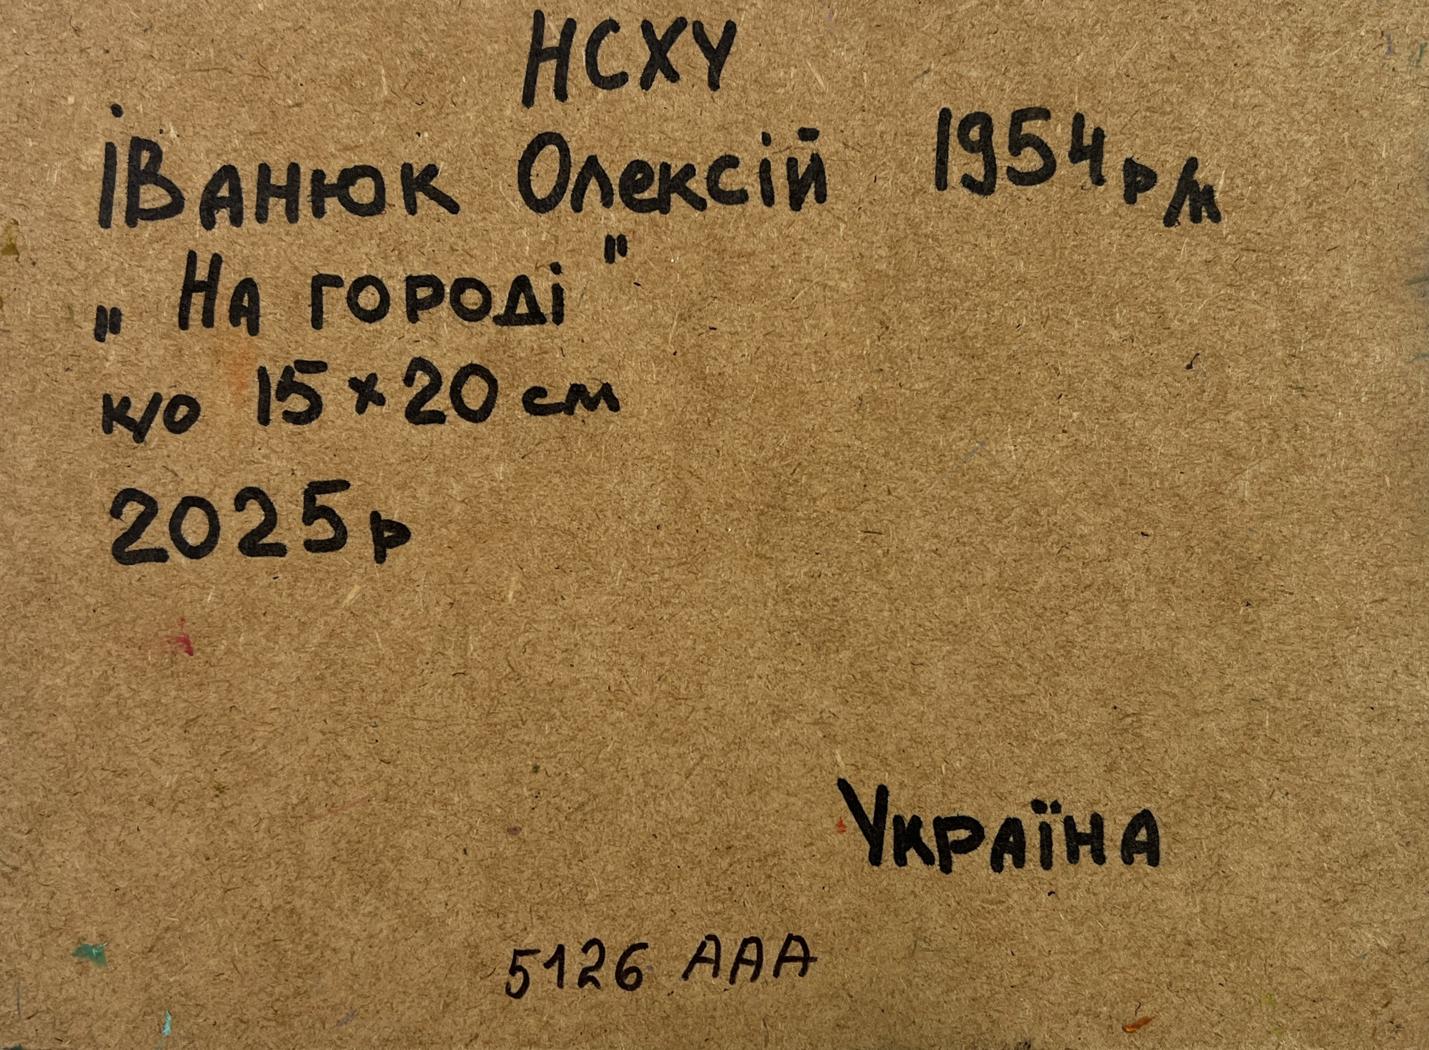 НСХУ
Іванюк Олексій 1954 р/н
„ На городі "
к/о 15 × 20 см
2025 р
Україна
5126 ААА